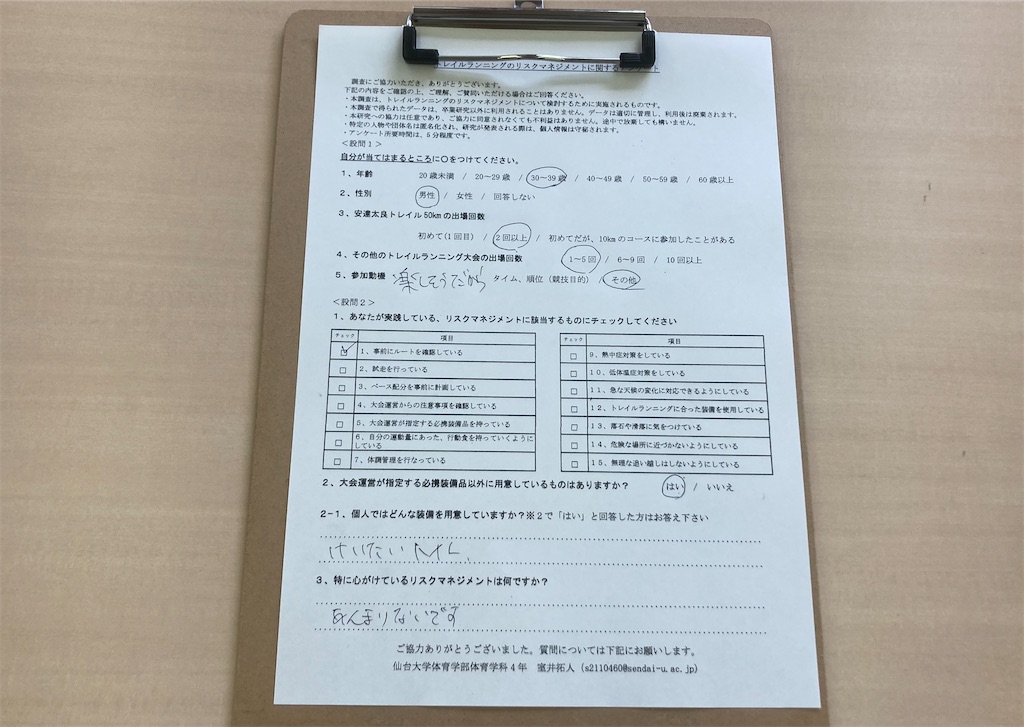 トレイルランニングのリスクマネジメントに関するアンケート
調査にご協力いただき、ありがとうございます。
下記の内容をご確認の上、ご理解、ご賛同いただける場合はご回答ください。
・本調査は、トレイルランニングのリスクマネジメントについて検討するために実施されるものです。
・本調査で得られたデータは、卒業研究以外に利用されることはありません。データは適切に管理し、利用後は廃棄されます。
・本研究への協力は任意であり、ご協力に同意されなくても不利益はありません。途中で放棄しても構いません。
・特定の人物や団体名は匿名化され、研究が発表される際は、個人情報は守秘されます。
・アンケート所要時間は、5分程度です。
＜設問1＞
自分が当てはまるところに○をつけてください。
1、年齢 20歳未満 / 20～29歳 / 30～39歳 / 40～49歳 / 50～59歳 / 60歳以上
2、性別 男性 / 女性 / 回答しない
3、安達太良トレイル50kmの出場回数
初めて(1回目) / 2回以上 / 初めてだが、10kmのコースに参加したことがある
4、その他のトレイルランニング大会の出場回数 1～5回 / 6～9回 / 10回以上
5、参加動機 楽しそうだから タイム、順位（競技目的） / その他
＜設問2＞
1、あなたが実践している、リスクマネジメントに該当するものにチェックしてください
チェック 項目
☑ 1、事前にルートを確認している
□ 2、試走を行っている
□ 3、ペース配分を事前に計画している
□ 4、大会運営からの注意事項を確認している
□ 5、大会運営が指定する必携装備品を持っている
□ 6、自分の運動量にあった、行動食を持っていくように
している
□ 7、体調管理を行なっている
チェック 項目
□ 9、熱中症対策をしている
□ 10、低体温症対策をしている
□ 11、急な天候の変化に対応できるようにしている
□ 12、トレイルランニングに合った装備を使用している
□ 13、落石や滑落に気をつけている
□ 14、危険な場所に近づかないようにしている
□ 15、無理な追い越しはしないようにしている
2、大会運営が指定する必携装備品以外に用意しているものはありますか？ はい / いいえ
2-1、個人ではどんな装備を用意していますか？※2で「はい」と回答した方はお答え下さい
けいたい
3、特に心がけているリスクマネジメントは何ですか？
あんまりないです
ご協力ありがとうございました。質問については下記にお願いします。
仙台大学体育学部体育学科4年 室井拓人（s2110460@sendai-u.ac.jp）